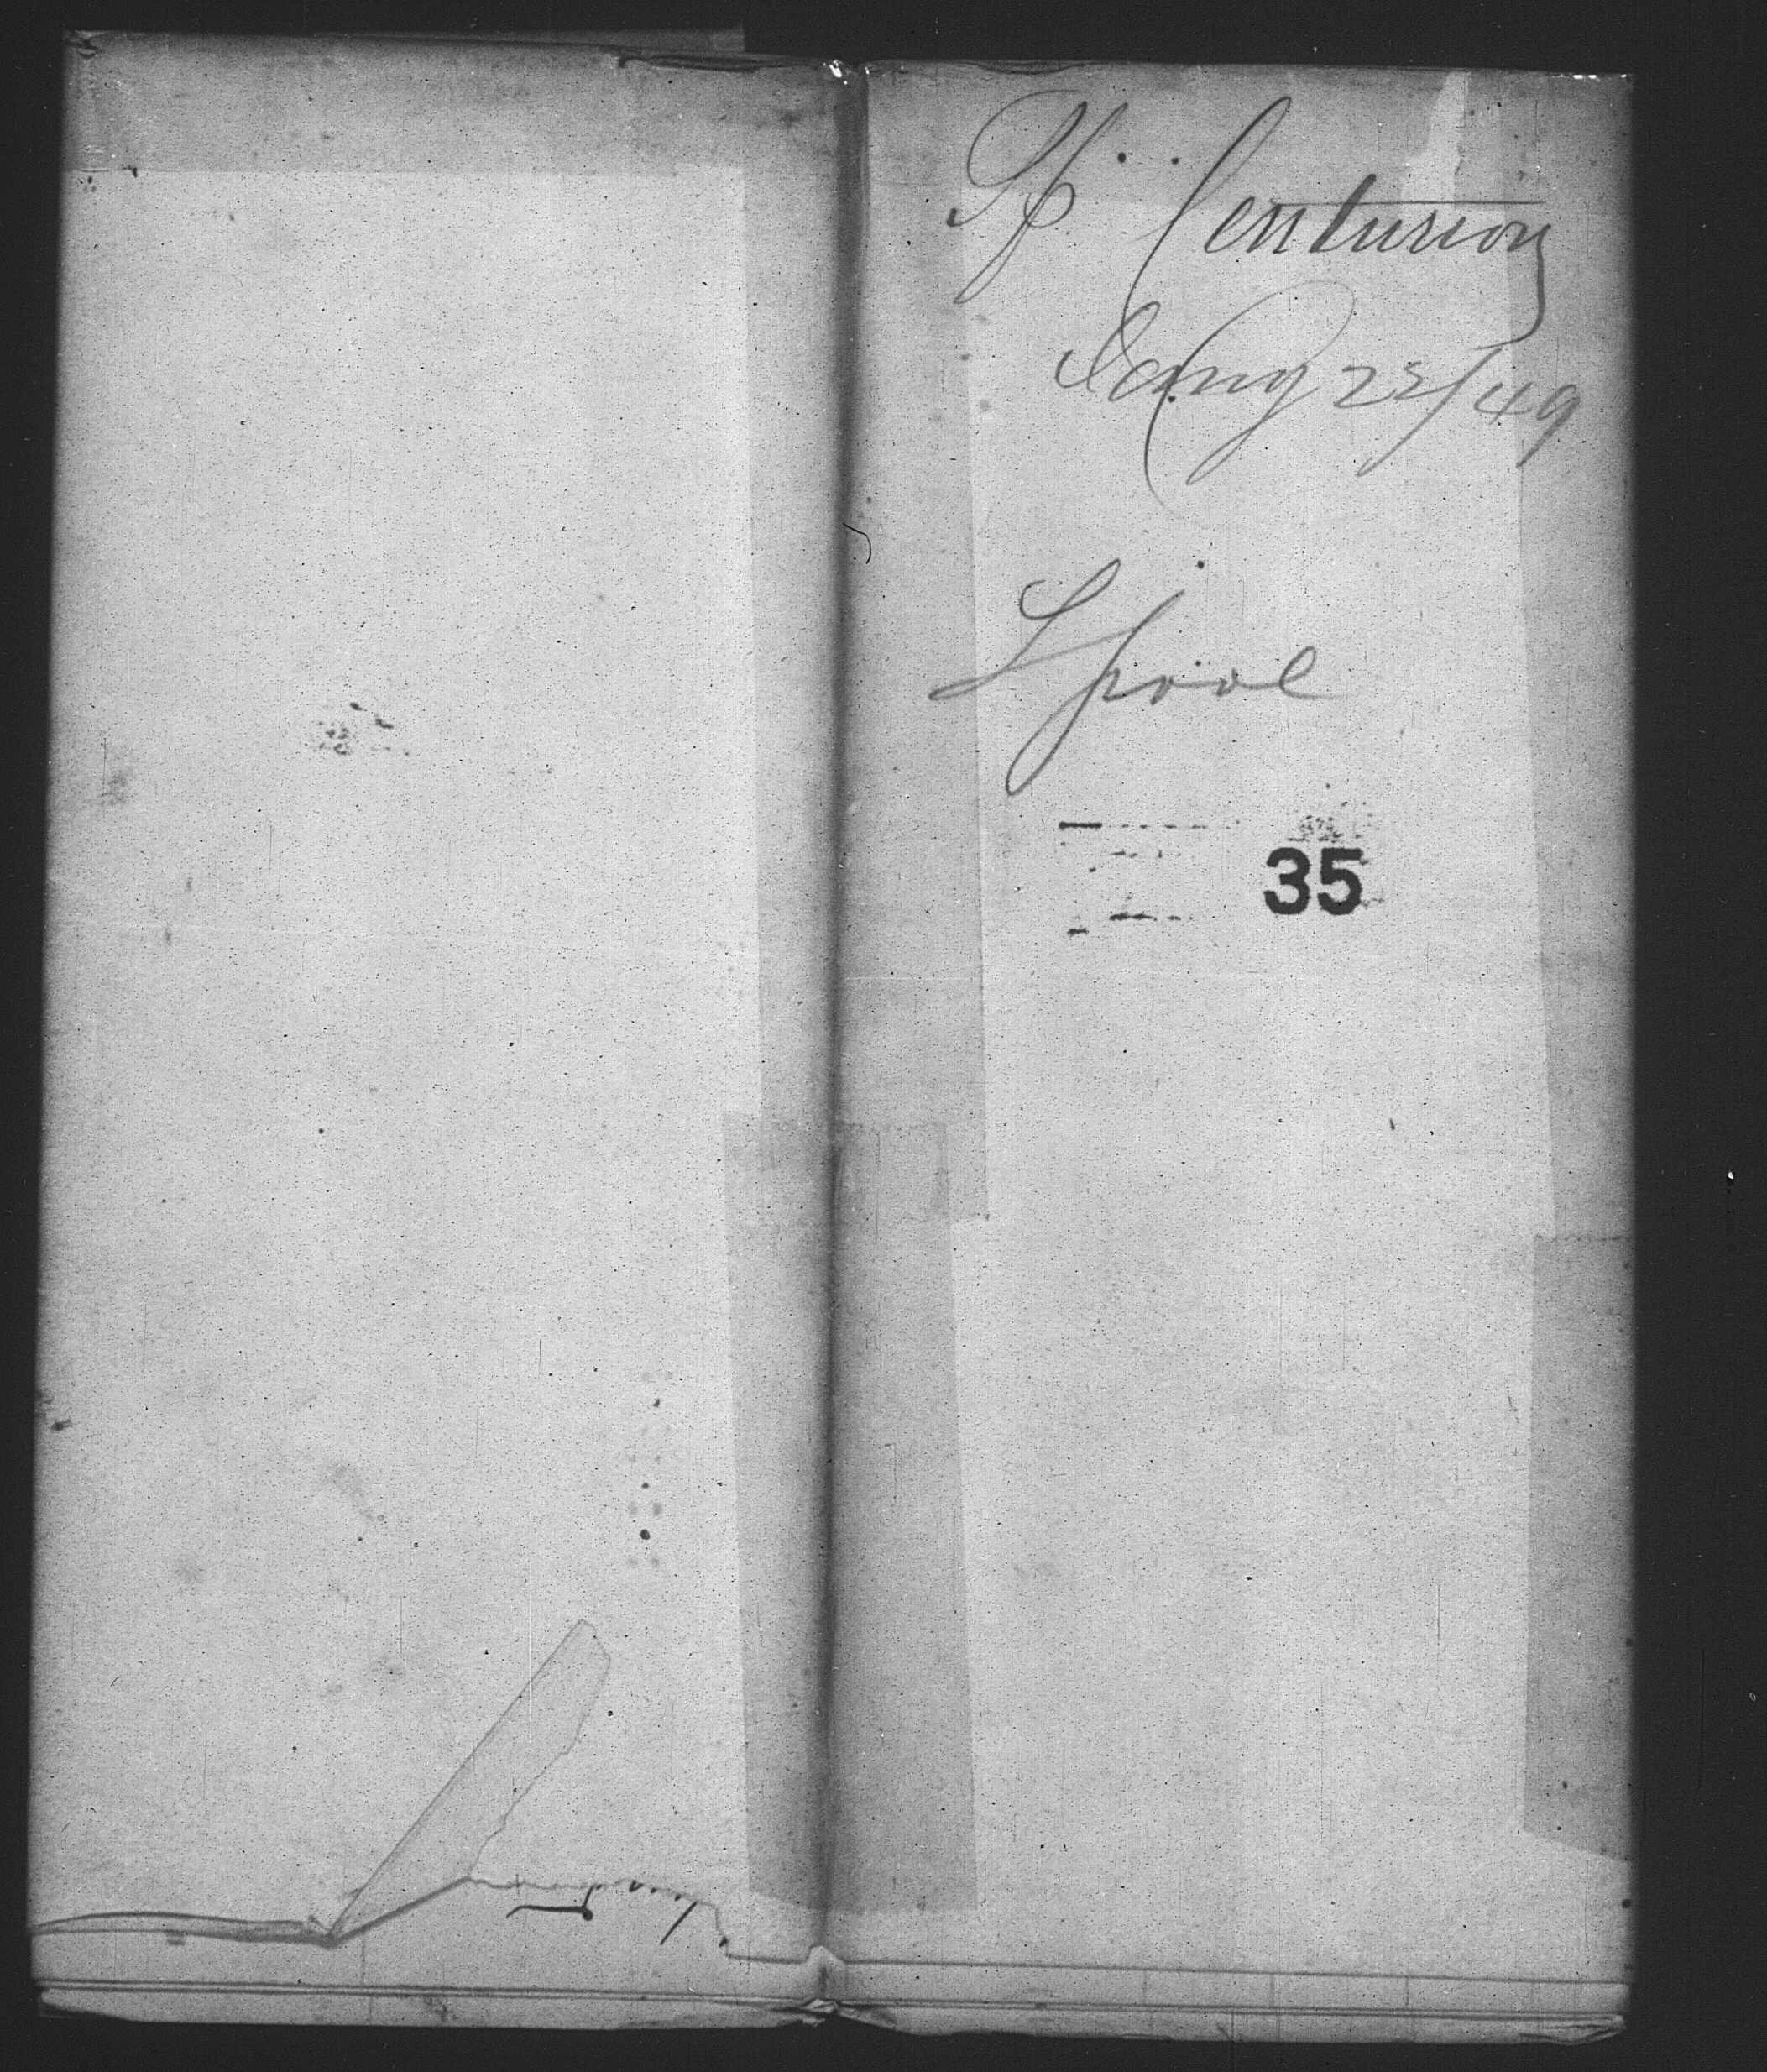 Sp Centurion
Jany 22/49
Lpool
35